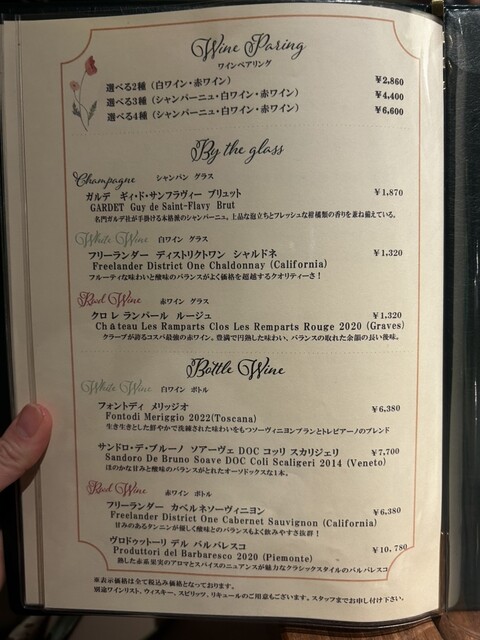 Wine Paring
ワインペアリング
選べる2種（白ワイン・赤ワイン） ¥2,860
選べる3種（シャンパーニュ・白ワイン・赤ワイン） ¥4,400
選べる4種（シャンパーニュ・白ワイン・赤ワイン） ¥6,600
By the glass
Champagne シャンパン グラス
ガルデ ギィ・ド・サンフラヴィー ブリュット ¥1,870
GARDET Guy de Saint-Flavy Brut
名門ガルデ社が手掛ける本格派のシャンパーニュ。上品な泡立ちとフレッシュな柑橘類の香りを兼ね備えている。
White Wine 白ワイン グラス
フリーランダー ディストリクトワン シャルドネ ¥1,320
Freelander District One Chaldonnay (California)
フルーティな味わいと酸味のバランスがよく価格を超越するクオリティーさ！
Red Wine 赤ワイン グラス
クロ レ ランパール ルージュ ¥1,320
Château Les Ramparts Clos Les Remparts Rouge 2020 (Graves)
グラーブが誇るコスパ最強の赤ワイン。豊満で円熟した味わい、バランスの取れた余韻の長い後味。
Bottle Wine
White Wine 白ワイン ボトル
フォントディ メリッジオ ¥6,380
Fontodi Meriggio 2022(Toscana)
生き生きとした鮮やかで洗練された味わいをもつソーヴィニヨンブランとトレビアーノのブレンド
サンドロ・デ・ブルーノ ソアーヴェ DOC コッリ スカリジェリ ¥7,700
Sandoro De Bruno Soave DOC Coli Scaligeri 2014 (Veneto)
ほのかな甘みと酸味のバランスがとれたオーソドックスな1本。
Red Wine 赤ワイン ボトル
フリーランダー カベルネソーヴィニヨン ¥6,380
Freelander District One Cabernet Sauvignon (California)
甘みのあるタンニンが優しく酸味とのバランスもよく飲みやすさ抜群！
プロドゥットーリ デル バルバレスコ ¥10,780
Produttori del Barbaresco 2020 (Piemonte)
熟した赤系果実のアロマとスパイスのニュアンスが魅力なクラシックスタイルのバルバレスコ
※表示価格は全て税込み価格となっております。
別途ワインリスト、ウィスキー、スピリッツ、リキュールのご用意もございます。スタッフまでお申し付け下さい。